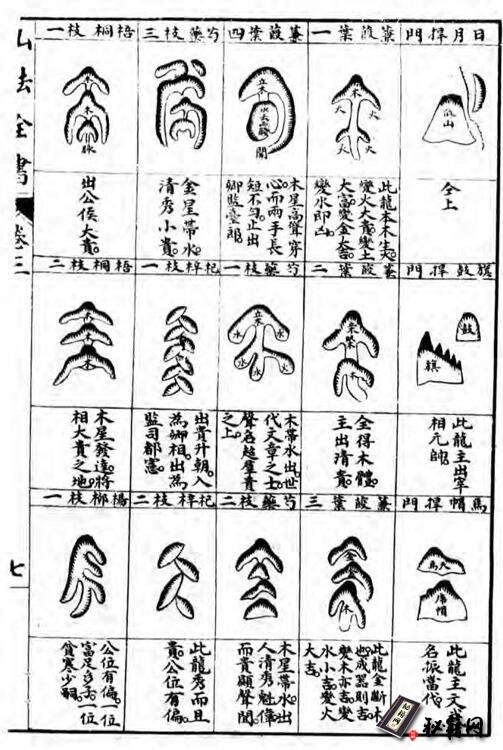 山法全書
卷三
七
日月捍門
山
仝上
蒹葭葉一
木
火
火
火
火
變火大貴變土
大富變金大吉
變水即凶
蒹葭葉四
立木
木星高聳穿
心而兩手長
短不勻止出
卿監臺郎
芍藥枝三
金星帶水
清秀小貴
梧桐枝一
木
木
脉
出公侯大貴
旗鼓捍門
鼓
旗
此龍主出宰
相元帥
蒹葭葉二
木
全得木體
主出清貴
芍藥枝一
立木
水
水
水
火
木帶水出世
代文章之士
聲名越羣貴
之上
杞梓枝一
出貴升朝入
為卿相出為
監司都憲
梧桐枝二
木
木
木
木星發達將
相大貴之地
馬帽捍門
天馬
席帽
此龍主文
名派當代
蒹葭葉三
金
木
此龍金斷木
也成器則吉
變木亦吉變
水小吉變火
大吉
芍藥枝二
木星帶水出
人清秀魁偉
而貴顯聲聞
杞梓枝二
此龍秀而且
貴公位有偏
楊柳枝一
公位有偏一位
富足多丟一位
貧寒少嗣
秘籍网